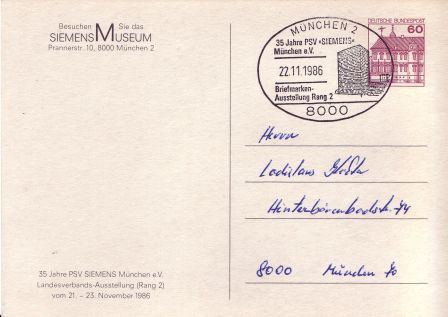 Besuchen Sie das
SIEMENS MUSEUM
Prannerstr. 10, 8000 München 2
MÜNCHEN 2
35 Jahre PSV »SIEMENS«
München e.V.
22.11.1986
Briefmarken-
Ausstellung Rang 2
8000
DEUTSCHE BUNDESPOST
60
Herrn
Ladislaus
44
8000 München 70
35 Jahre PSV SIEMENS München e.V.
Landesverbands-Ausstellung (Rang 2)
vom 21. – 23. November 1986